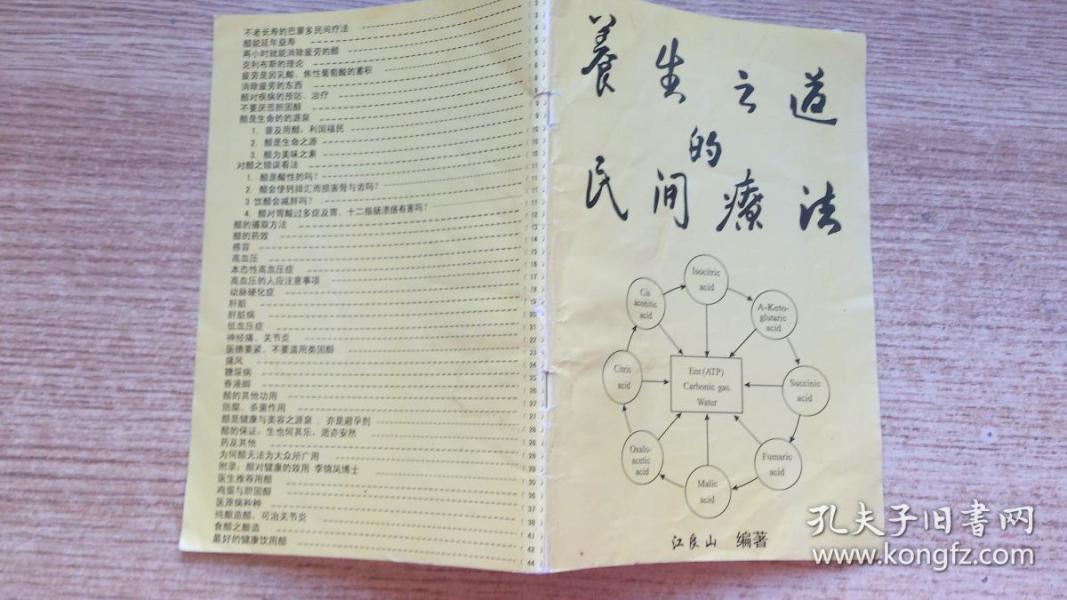 不老长寿的巴蒙多民间疗法
醋能延年益寿
两小时就能消除疲劳的醋
克利布斯的理论
疲劳是因乳酸、焦性葡萄酸的蓄积
消除疲劳的东西
醋对疾病的预防、治疗
不要厌恶胆固醇
醋是生命的的源泉
1. 普及用醋，利国福民
2. 醋是生命之源
3. 醋为美味之素
对醋之错误看法
1. 醋是酸性的吗?
2. 醋会使钙排汇而损害骨与齿吗?
3 饮醋会减胖吗?
4. 醋对胃酸过多症及胃、十二指肠溃疡有害吗?
醋的摄取方法
醋的药效
感冒
高血压
本态性高血压症
高血压的人应注意事项
动脉硬化症
肝脏
肝脏病
低血压症
神经痛、关节炎
医德要紧、不要滥用类固醇
痛风
糖尿病
香港脚
醋的其他功用
防腐、杀菌作用
醋是健康与美容之源泉，亦是避孕剂
醋的保证：生也何其乐，逝亦安然
药及其他
为何醋无法为大众所广用
附录：醋对健康的效用 李锦凤博士
医生推荐用醋
鸡蛋与胆固醇
医源病种种
纯酿造醋，可治关节炎
食醋之酿造
最好的健康饮用醋
養生之道
的
民间療法
Isocitric
acid
Cis
aconitic
acid
A-Keto-
glutaric
acid
Citric
acid
Ene.(ATP)
Carbonic gas.
Water
Succinic
acid
Oxalo-
acetic
acid
Fumaric
acid
Malic
acid
江良山 编著
孔夫子旧书网
www.kongfz.com